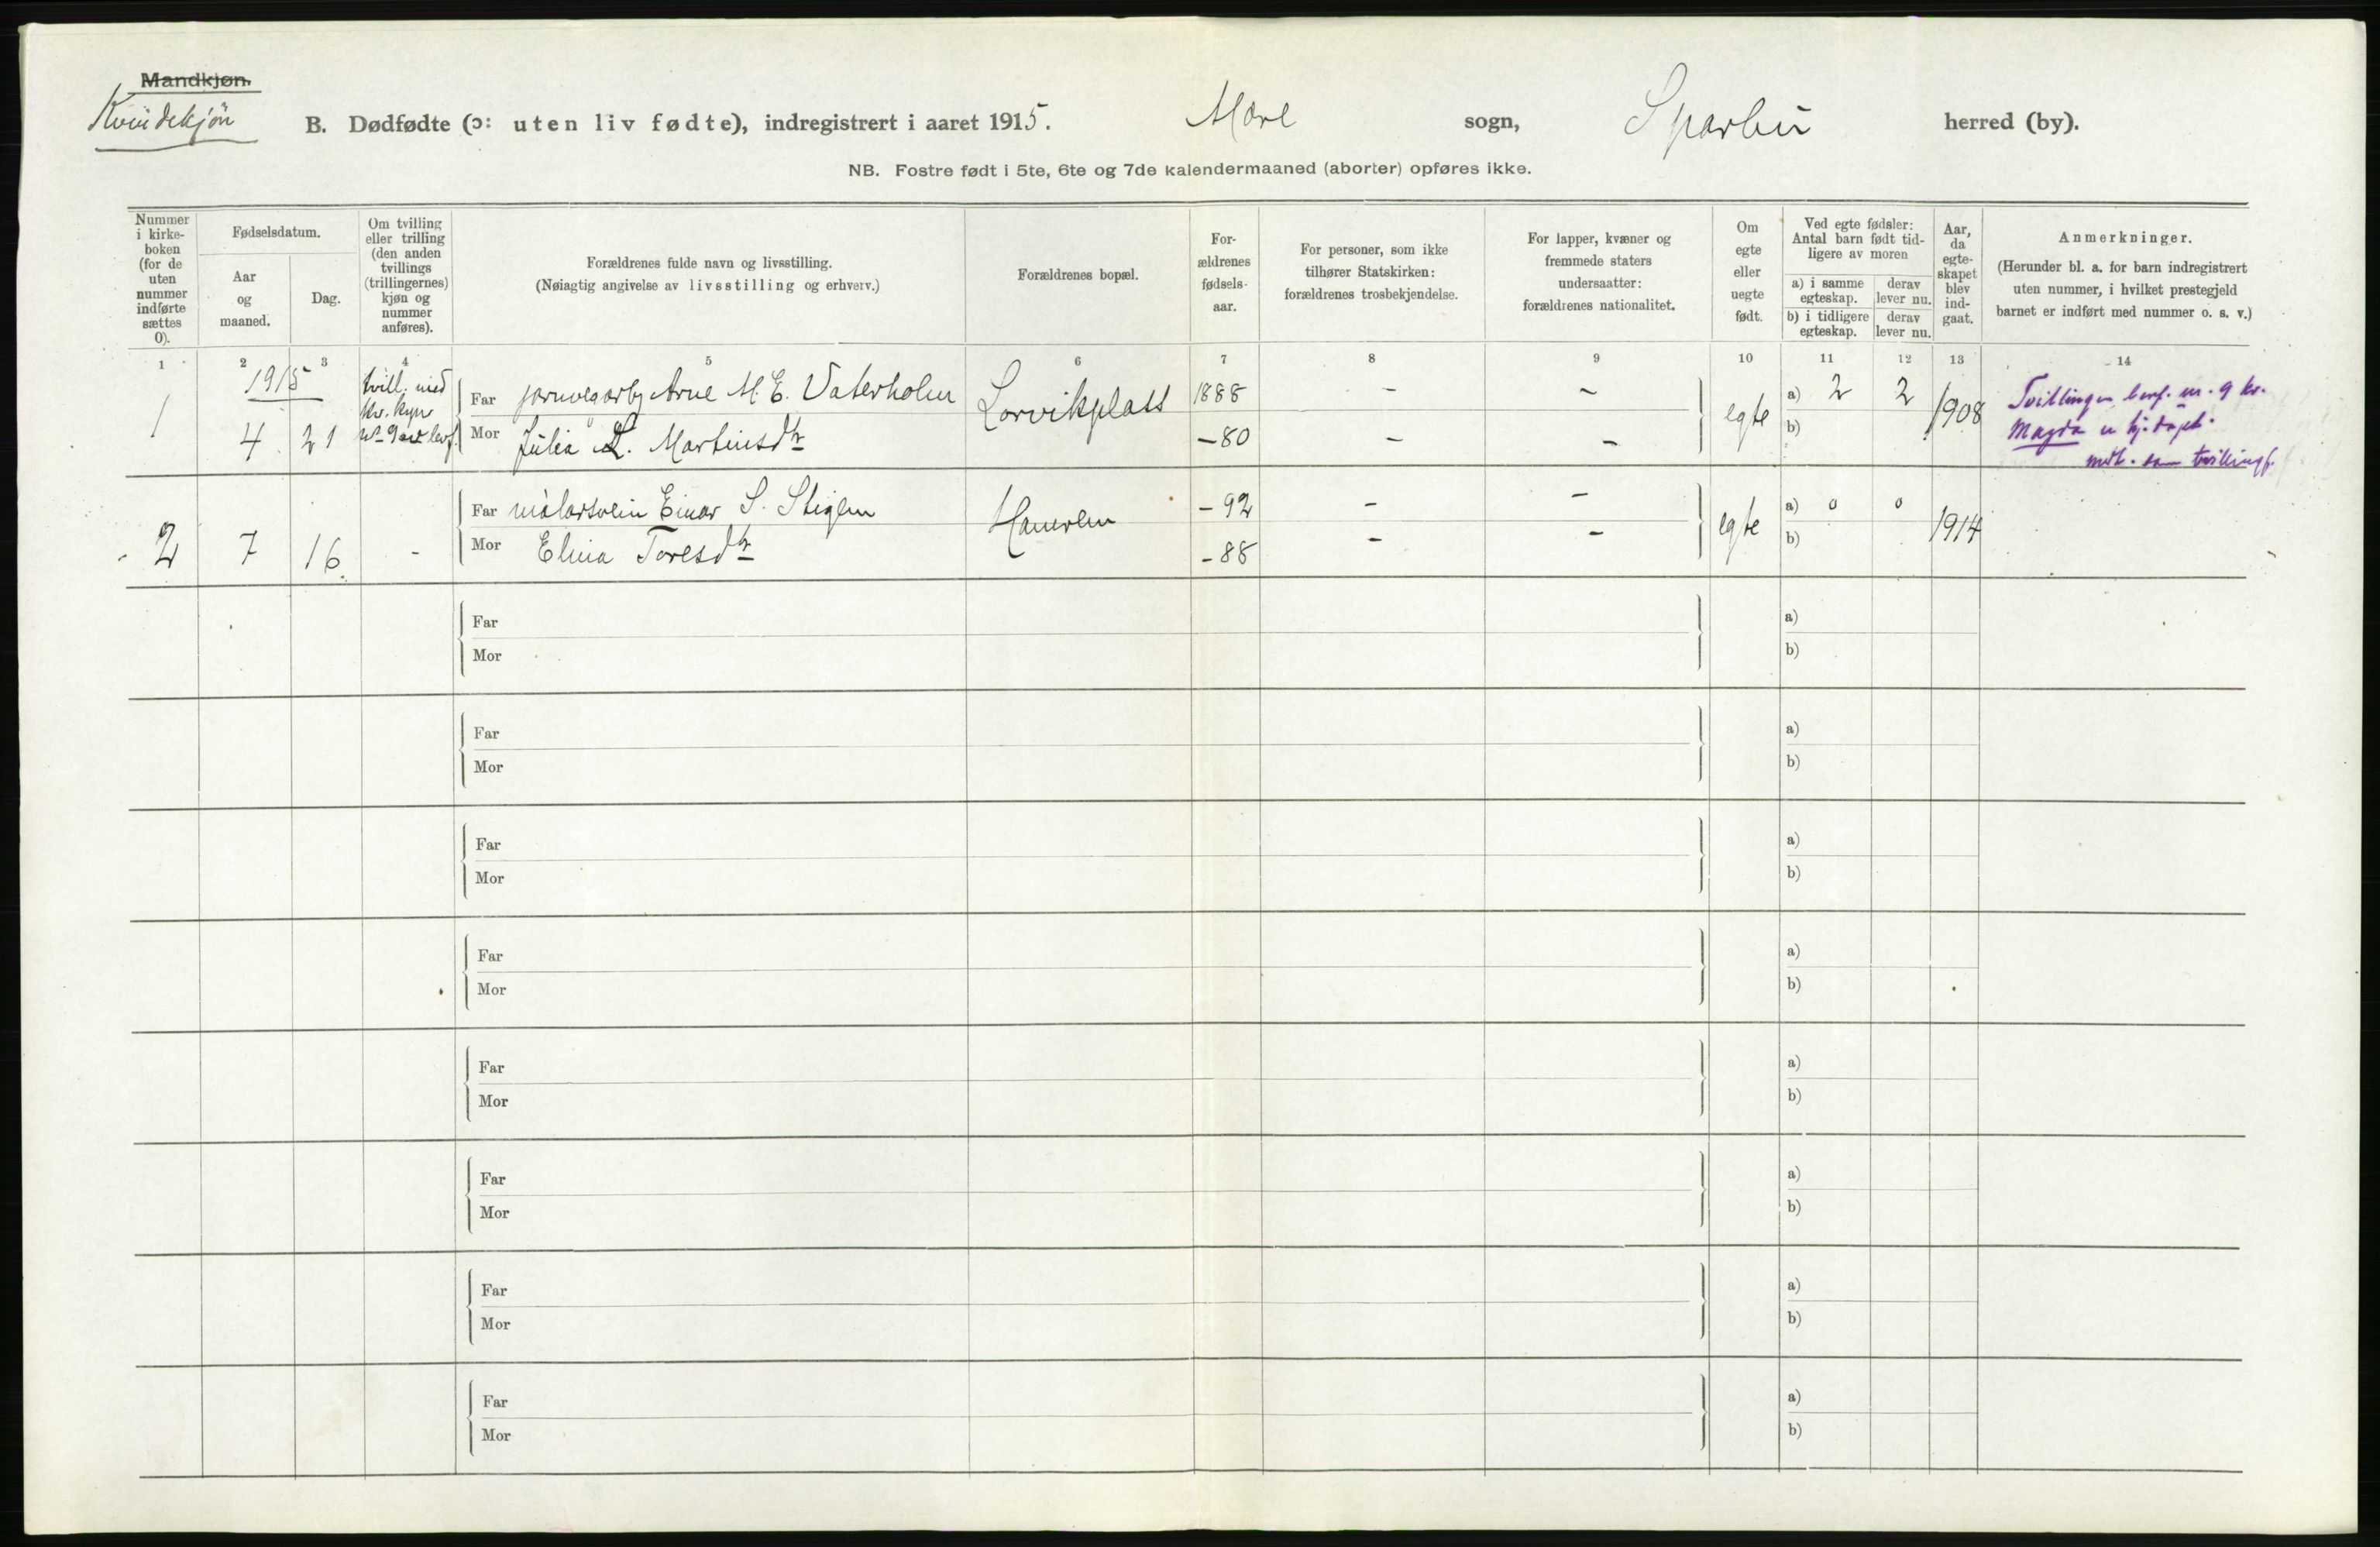 Mandkjøn.
Kvindekjøn
B. Dødfødte (ɔ: uten liv fødte), indregistrert i aaret 1915. Mære sogn, Sparbu herred (by).
NB. Fostre født i 5te, 6te og 7de kalendermaaned (aborter) opføres ikke.
Nummer i kirke-boken (for de uten nummer indførte sættes 0).
Fødselsdatum.
Aar og maaned.
Dag.
Om tvilling eller trilling (den anden tvillings (trillingernes) kjøn og nummer anføres).
Forældrenes fulde navn og livsstilling.
(Nøiagtig angivelse av livsstilling og erhverv.)
Forældrenes bopæl.
For-ældrenes fødsels-aar.
For personer, som ikke tilhører Statskirken: forældrenes trosbekjendelse.
For lapper, kvæner og fremmede staters undersaatter: forældrenes nationalitet.
Om egte eller uegte født.
Ved egte fødsler: Antal barn født tid-ligere av moren
a) i samme egteskap.
derav lever nu.
b) i tidligere egteskap.
derav lever nu.
Aar, da egte-skapet blev ind-gaat.
Anmerkninger.
(Herunder bl. a. for barn indregistrert uten nummer, i hvilket prestegjeld barnet er indført med nummer o. s. v.)
1 2 3 4 5 6 7 8 9 10 11 12 13 14
1915 tvill. med
kv. kyn
Far Arne M. E. Vaterholm Lorvikplass 1888 - - a) 2 2
1 4 21 egte 1908
Mor Julia Martinsdtr -80 - - b)
Tvillingen levf. m. 9 kv.
Magda
tvillingf.
Far målarsvein Einar S. Stiglen -92 - - a) 0 0
2 7 16. - egte 1914
Mor Elina Toresdtr -88 - - b)
Far a)
Mor b)
Far a)
Mor b)
Far a)
Mor b)
Far a)
Mor b)
Far a)
Mor b)
Far a)
Mor b)
Far a)
Mor b)
Far a)
Mor b)